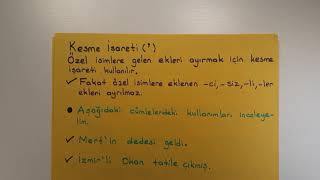 Kesme İşareti (')
Özel isimlere gelen ekleri ayırmak için kesme
işareti kullanılır.
✓ Fakat özel isimlere eklenen -ci, -siz, -li, -ler
ekleri ayrılmaz.
• Aşağıdaki cümlelerdeki kullanımları inceleye-
lim.
✓ Mert'in dedesi geldi.
✓ İzmir'li Okan tatile çıkmış.